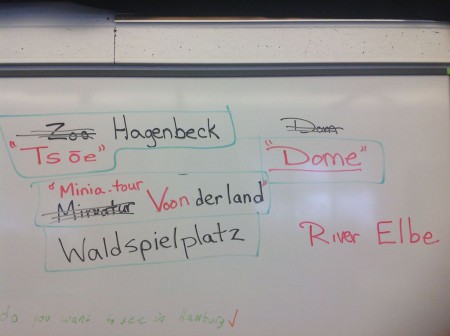 Zoo Hagenbeck
"Tsōe"
Dom
"Dome"
"Minia-tour
Miniatur Voonderland"
Waldspielplatz
River Elbe
do you want to see in Hamburg ✓